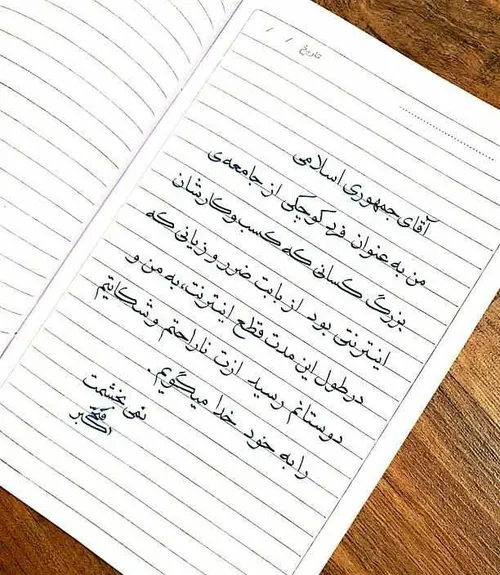 تاریخ / /
آقای جمهوری اسلامی
من به عنوان فرد کوچکی از جامعه‌ی
بزرگ کسانی که کسب و کارشان
اینترنتی بود از بابت ضرر و زیانی که
در طول این مدت قطع اینترنت، به من و
دوستانم رسید ازت ناراحتم و شکایتم
را به خود خدا میگویم.
نمی بخشمت